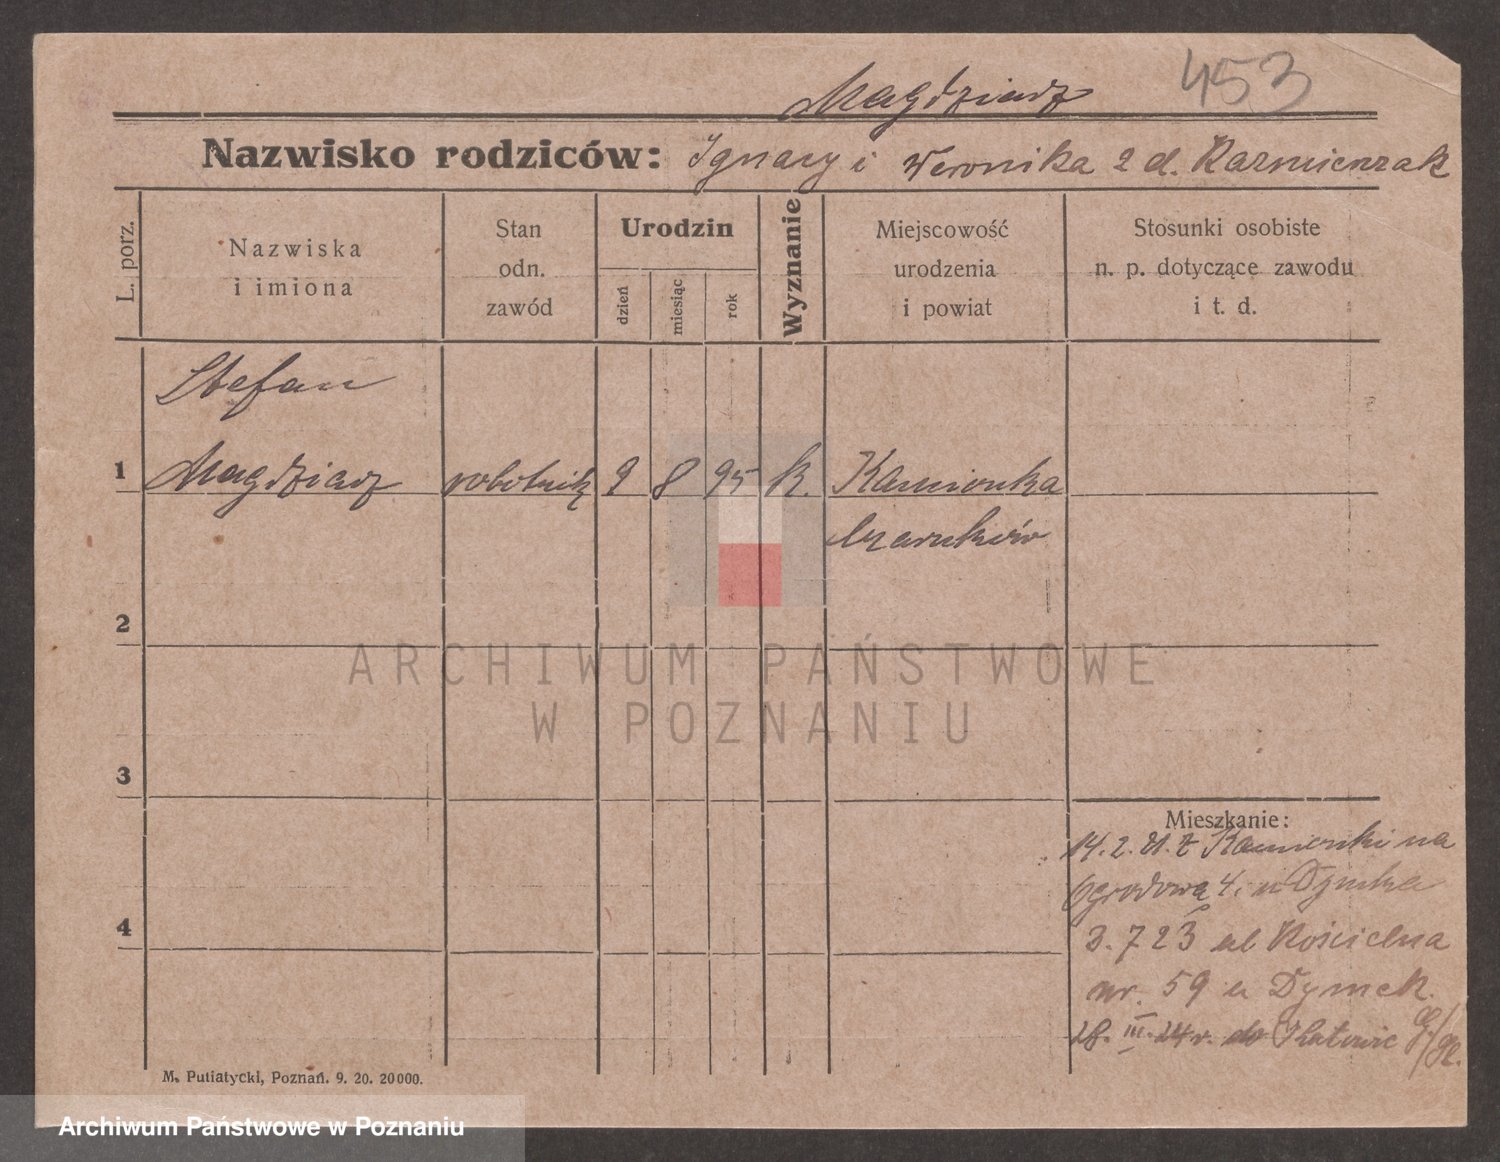 453
Magdziarz
Nazwisko rodziców: Ignacy i Weronika 2 d. Kazmierzak
L. porz.
Nazwiska
i imiona
Stan
odn.
zawód
Urodzin
dzień
miesiąc
rok
Wyznanie
Miejscowość
urodzenia
i powiat
Stosunki osobiste
n. p. dotyczące zawodu
i t. d.
Stefan
1 Magdziarz robotnik 9 8 95 k. Kamionka
Czarnków
2
ARCHIWUM PAŃSTWOWE
W POZNANIU
3
Mieszkanie:
14. 2. 21. z Kamionki na
Ogrodową 4. u Dymka
4
3. 7 23 ul Kościelna
nr. 59 u Dymek.
28. III. 24 r. do Katowic
M. Putiatycki, Poznań. 9. 20. 20000.
Archiwum Państwowe w Poznaniu